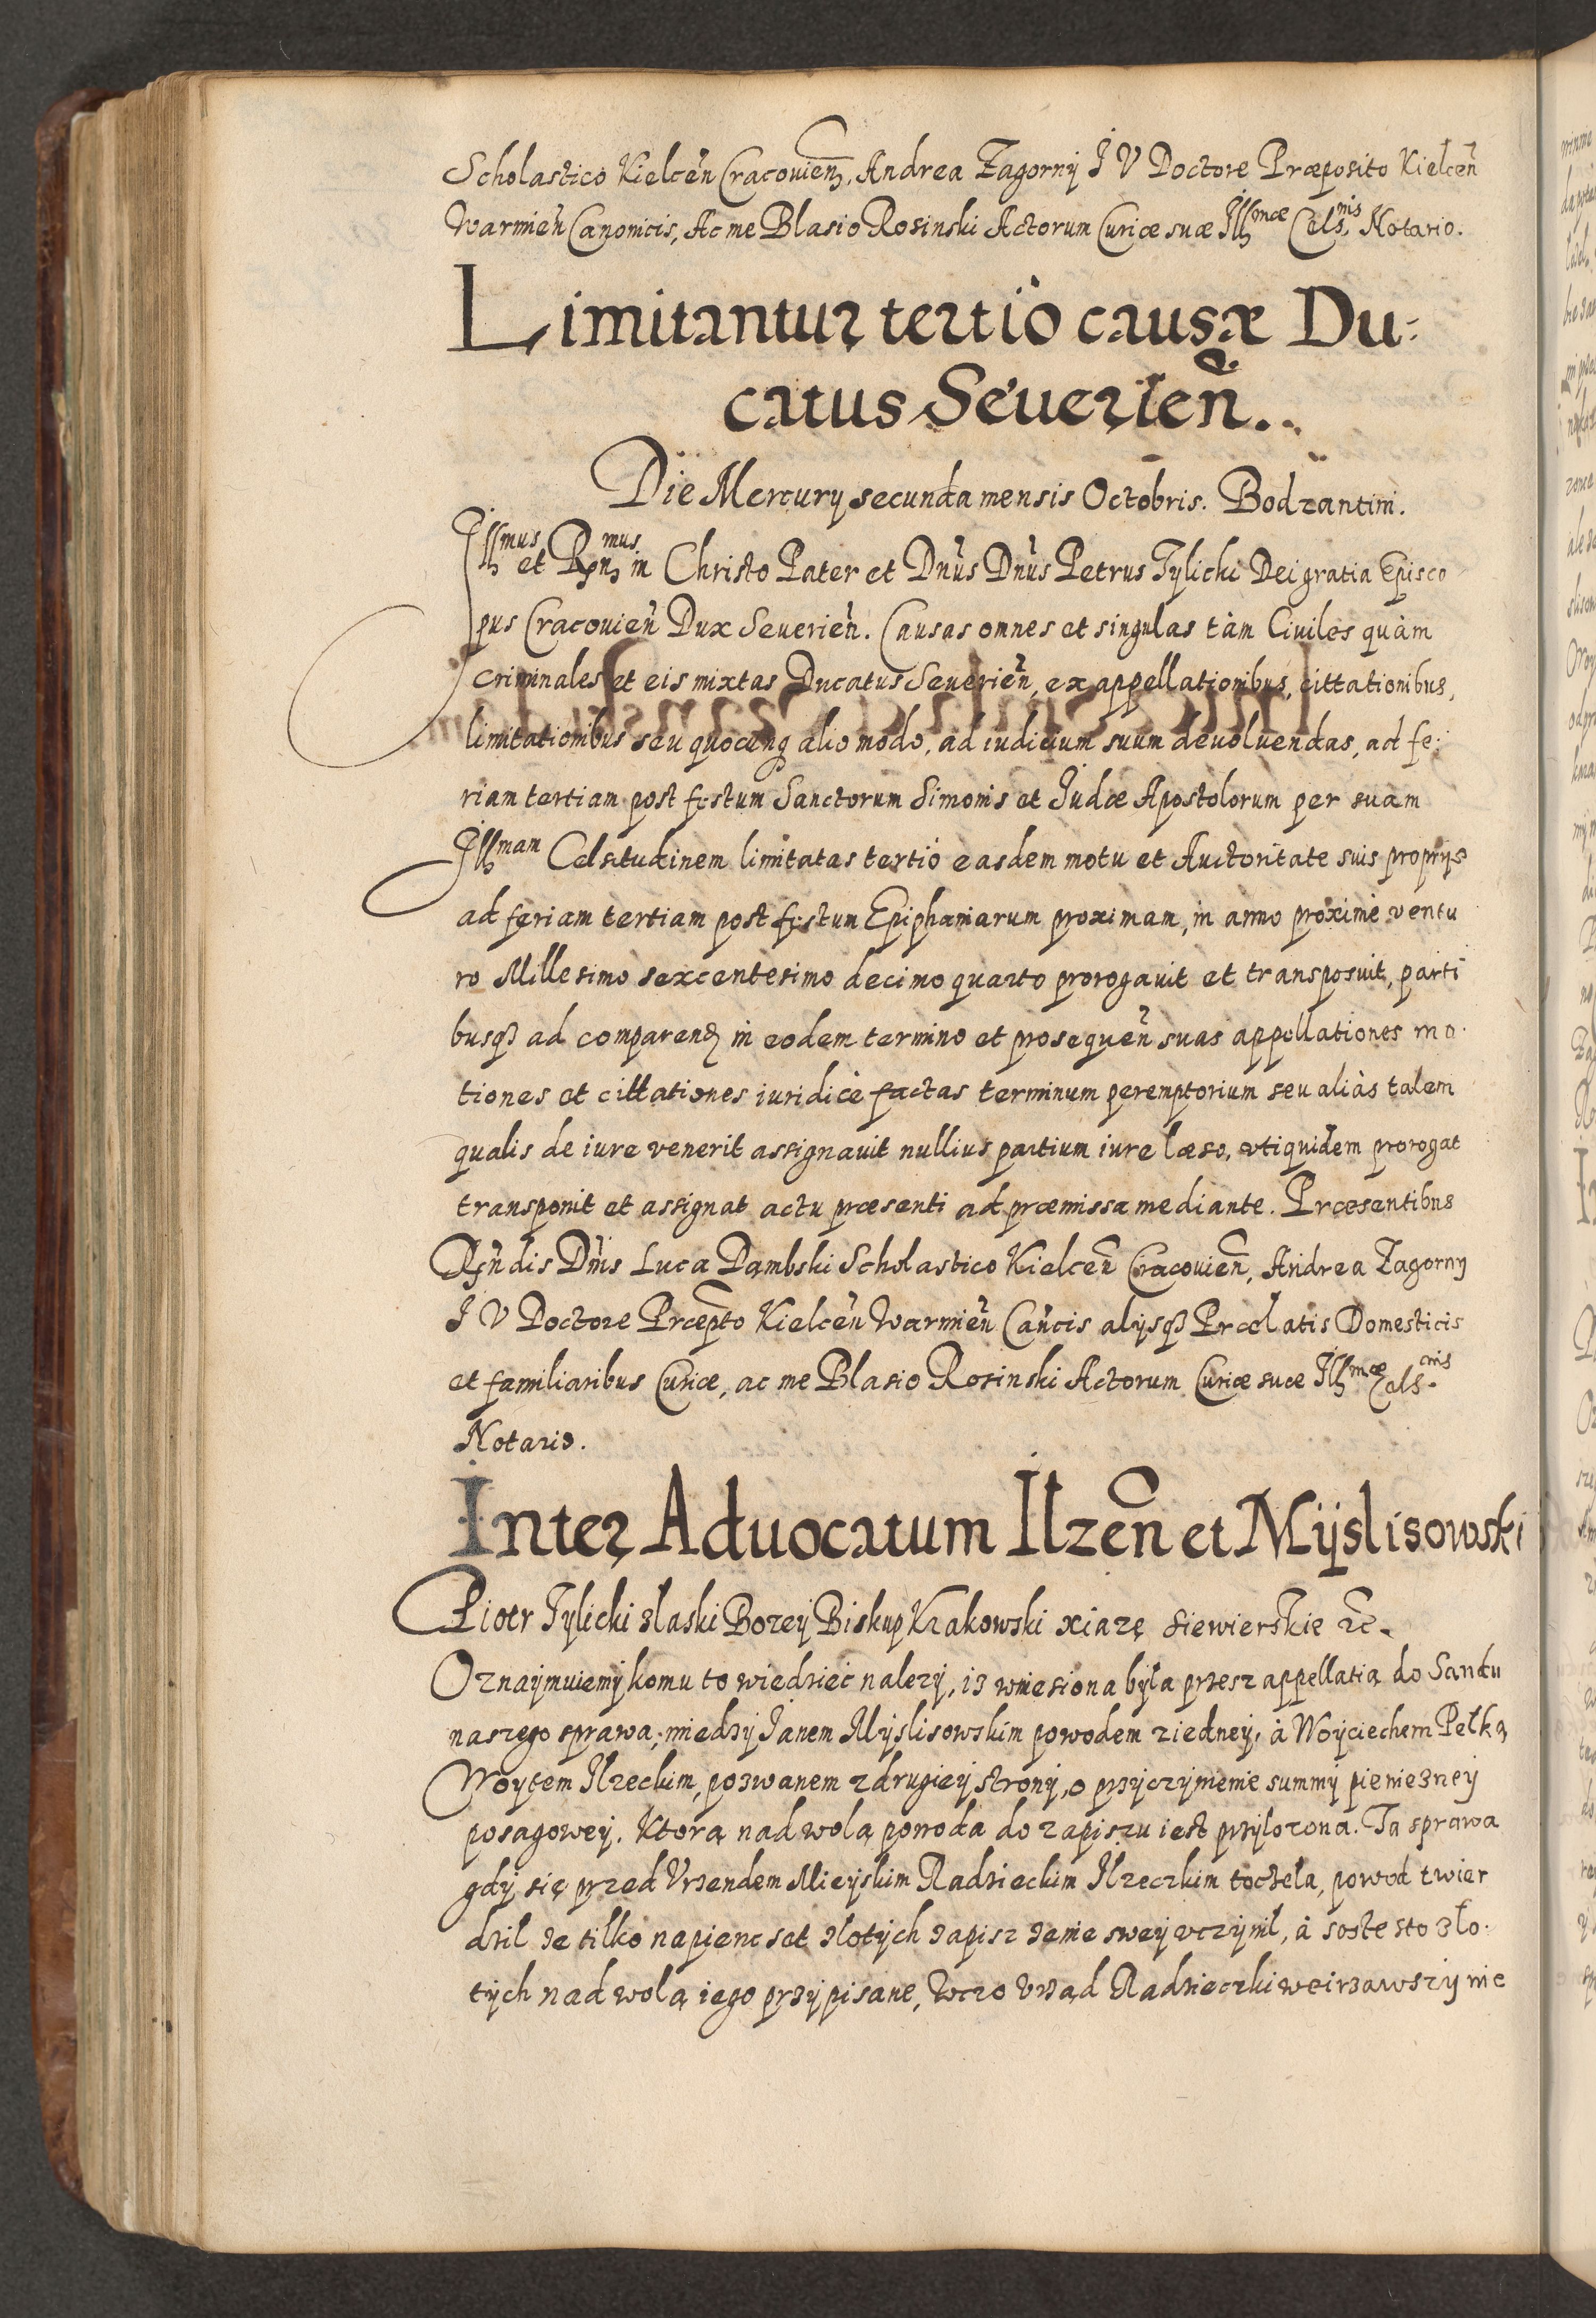 Scholastico Kielcen̄ Cracouien̄, Andrea Zagorny I V Doctore Præposito Kielcen̄
Warmien̄ Canonicis, Ac me Blasio Rosinski Actorum Curiæ suæ Illmæ Celsnis Notario.
Limitantur tertiò causæ Du:
catus Seuerien̄.
Die Mercurij secunda mensis Octobris. Bodzantini.
Illmus et Rn̄mus in Christo Pater et Dn̄us Dn̄us Petrus Tylicki Dei gratia Episco
pus Cracouien̄ Dux Seuerien̄. Causas omnes et singulas tàm Ciuiles quàm
criminales et eis mixtas Ducatus Seuerien̄, ex appellationibus, cittationibus,
limitationibus seu quocunq alio modo, ad iudicium suum deuoluendas, ad fe:
riam tertiam post festum Sanctorum Simonis et Iudæ Apostolorum per suam
Illmam Celsitudinem limitatas tertiò easdem motu et Auctoritate suis proprijs
ad feriam tertiam post festum Epiphaniarum proximam, in anno proximè ventu
ro Millesimo sexcentesimo decimo quarto prorogauit et transposuit, parti
busqȝ ad comparend in eodem termino et prosequen̄ suas appellationes mo
tiones et cittationes iuridicè factas terminum peremptorium seu aliàs talem
qualis de iure venerit assignauit nullius partium iure læso, vtiquidem prorogat
transponit et assignat actu præsenti ad præmissa mediante. Præsentibus
Rn̄dis Dn̄is Luca Dąmbski Scholastico Kielcen̄ Cracouien̄, Andrea Zagorny
I V Doctore Præpto Kielcen̄ Warmien̄ Can̄cis alijsqȝ Prælatis Domesticis
et familiaribus Curiæ, ac me Blasio Rosinski Actorum Curiæ suæ Illmæ Celsnis
Notario.
Inter Aduocatum Ilzen̄ et Mijslisowski
Piotr Tylicki zlaski Bozey Biskup Krakowski xiązę Siewierskie etc.
Oznaymuiemy komu to wiedzieć nalezy, iz wniesiona była przesz appellatią do Sandu
naszego sprawa, miedzy Ianem Myslisowskim powodem ziedney, à Woyciechem Pełką
Woytem Ilzeckim, pozwanem z drugiey strony, o przyczynienie summy pieniezney
posagowey. Ktora nad wolą powoda do zapiszu iest przylozona. Ta sprawa
gdy się przed Vrzendem Mieyskim Radzieckim Ilzeczkim toczela, powod twier
dzil ze tilko na pienc set zlotych zapisz zenie swey vczynil, à soste sto zło
tych nad wolą iego przypisane, Wczo Vrząd Radzieczki weirzawszy nie